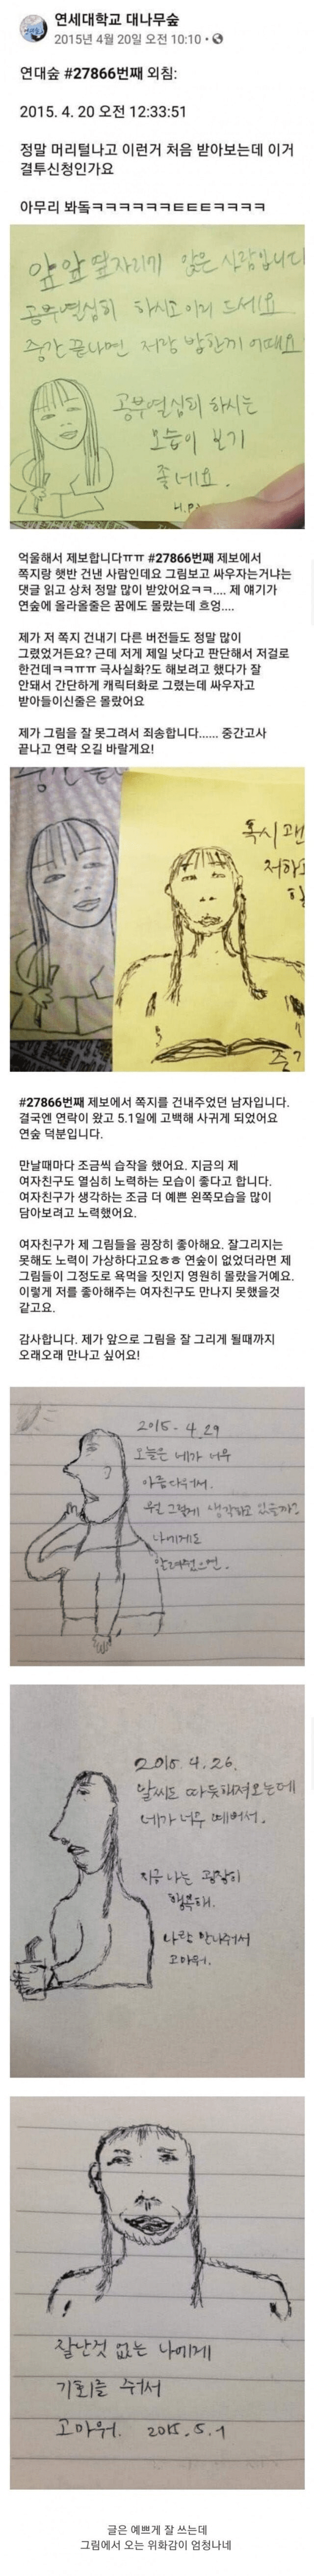 연세대학교 대나무숲
2015년 4월 20일 오전 10:10 ·
연대숲 #27866번째 외침:
2015. 4. 20 오전 12:33:51
정말 머리털나고 이런거 처음 받아보는데 이거
결투신청인가요
아무리 봐돜ㅋㅋㅋㅋㅋㅋㅌㅌㅌㅋㅋㅋㅋ
앞앞 옆자리에 앉은 사람입니다
공부열심히 하시고 이거 드세요
중간 끝나면 저랑 밥한끼 어때요
공부열심히 하시는
모습이 보기
좋네요.
억울해서 제보합니다ㅠㅠ #27866번째 제보에서
쪽지랑 햇반 건낸 사람인데요 그림보고 싸우자는거냐는
댓글 읽고 상처 정말 많이 받았어요ㅋㅋ.... 제 얘기가
연숲에 올라올줄은 꿈에도 몰랐는데 흐엉....
제가 저 쪽지 건내기 다른 버전들도 정말 많이
그렸었거든요? 근데 저게 제일 낫다고 판단해서 저걸로
한건데ㅋㅋㅠㅠ 극사실화?도 해보려고 했다가 잘
안돼서 간단하게 캐릭터화로 그렸는데 싸우자고
받아들이신줄은 몰랐어요
제가 그림을 잘 못그려서 죄송합니다...... 중간고사
끝나고 연락 오길 바랄게요!
혹시 괜
저하
#27866번째 제보에서 쪽지를 건내주었던 남자입니다.
결국엔 연락이 왔고 5.1일에 고백해 사귀게 되었어요
연숲 덕분입니다.
만날때마다 조금씩 습작을 했어요. 지금의 제
여자친구도 열심히 노력하는 모습이 좋다고 합니다.
여자친구가 생각하는 조금 더 예쁜 왼쪽모습을 많이
담아보려고 노력했어요.
여자친구가 제 그림들을 굉장히 좋아해요. 잘그리지는
못해도 노력이 가상하다고요ㅎㅎ 연숲이 없었더라면 제
그림들이 그정도로 욕먹을 짓인지 영원히 몰랐을거예요.
이렇게 저를 좋아해주는 여자친구도 만나지 못했을것
같고요.
감사합니다. 제가 앞으로 그림을 잘 그리게 될때까지
오래오래 만나고 싶어요!
2015. 4.29
오늘은 네가 너무
아름다워서.
뭘 그렇게 생각하고 있을까?
나에게도
알려줬으면.
2015. 4. 26.
날씨도 따듯해져오는데
네가 너무 예뻐서.
지금 나는 굉장히
행복해.
나랑 만나줘서
고마워.
잘난것 없는 나에게
기회를 줘서
고마워. 2015. 5. 1
글은 예쁘게 잘 쓰는데
그림에서 오는 위화감이 엄청나네